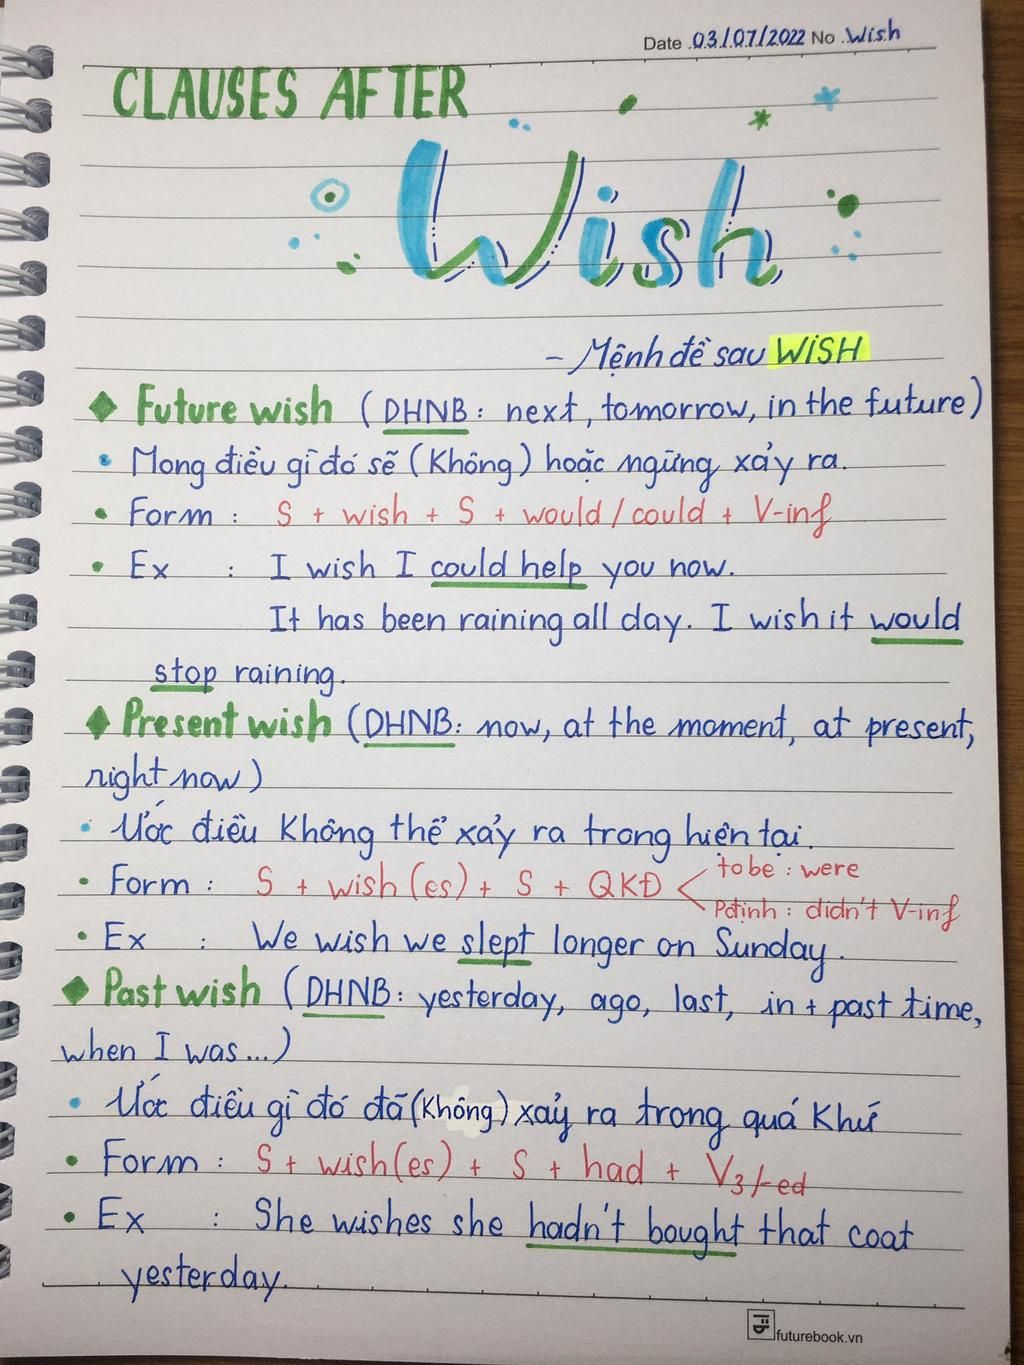 Date 03/07/2022 No Wish
CLAUSES AFTER
Wish
- Mệnh đề sau WISH
Future wish (DHNB: next, tomorrow, in the future)
Mong điều gì đó sẽ (không) hoặc ngừng xảy ra.
Form : S + wish + S + would/could + V-inf
Ex : I wish I could help you now.
It has been raining all day. I wish it would
stop raining.
Present wish (DHNB: now, at the moment, at present,
right now)
Ước điều không thể xảy ra trong hiện tại.
Form : S + wish(es) + S + QKĐ < to be : were
Pđịnh : didn't V-inf
Ex : We wish we slept longer on Sunday.
Past wish (DHNB: yesterday, ago, last, in + past time,
when I was...)
Ước điều gì đó đã (không) xảy ra trong quá khứ
Form : S + wish(es) + S + had + V3/-ed
Ex : She wishes she hadn't bought that coat
yesterday.
futurebook.vn